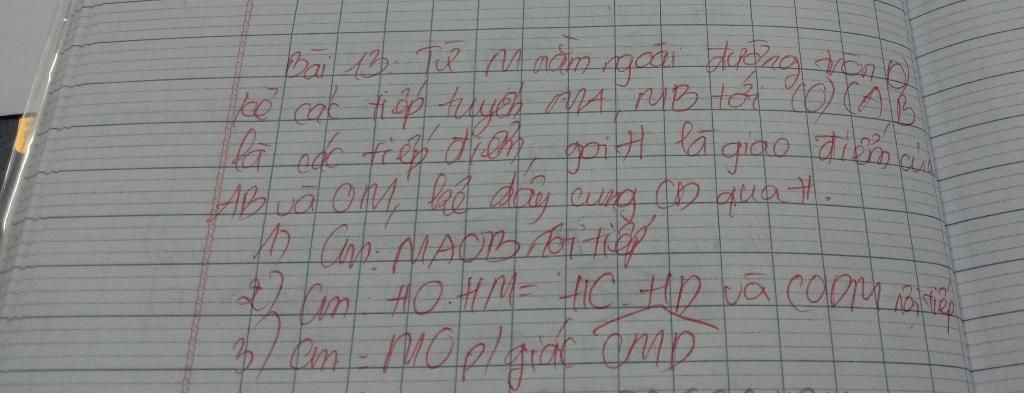 Bài 13. Từ M nằm ngoài đường tròn O
kẻ các tiếp tuyến MA, MB tới (O) (A, B
là các tiếp điểm, gọi H là giao điểm của
AB và OM, kẻ dây cung CD qua H.
1) Cm: MAOB nội tiếp
2) Cm: HO.HM = HC.HD và CODM nội tiếp
3) Cm = MO p/giác CMD